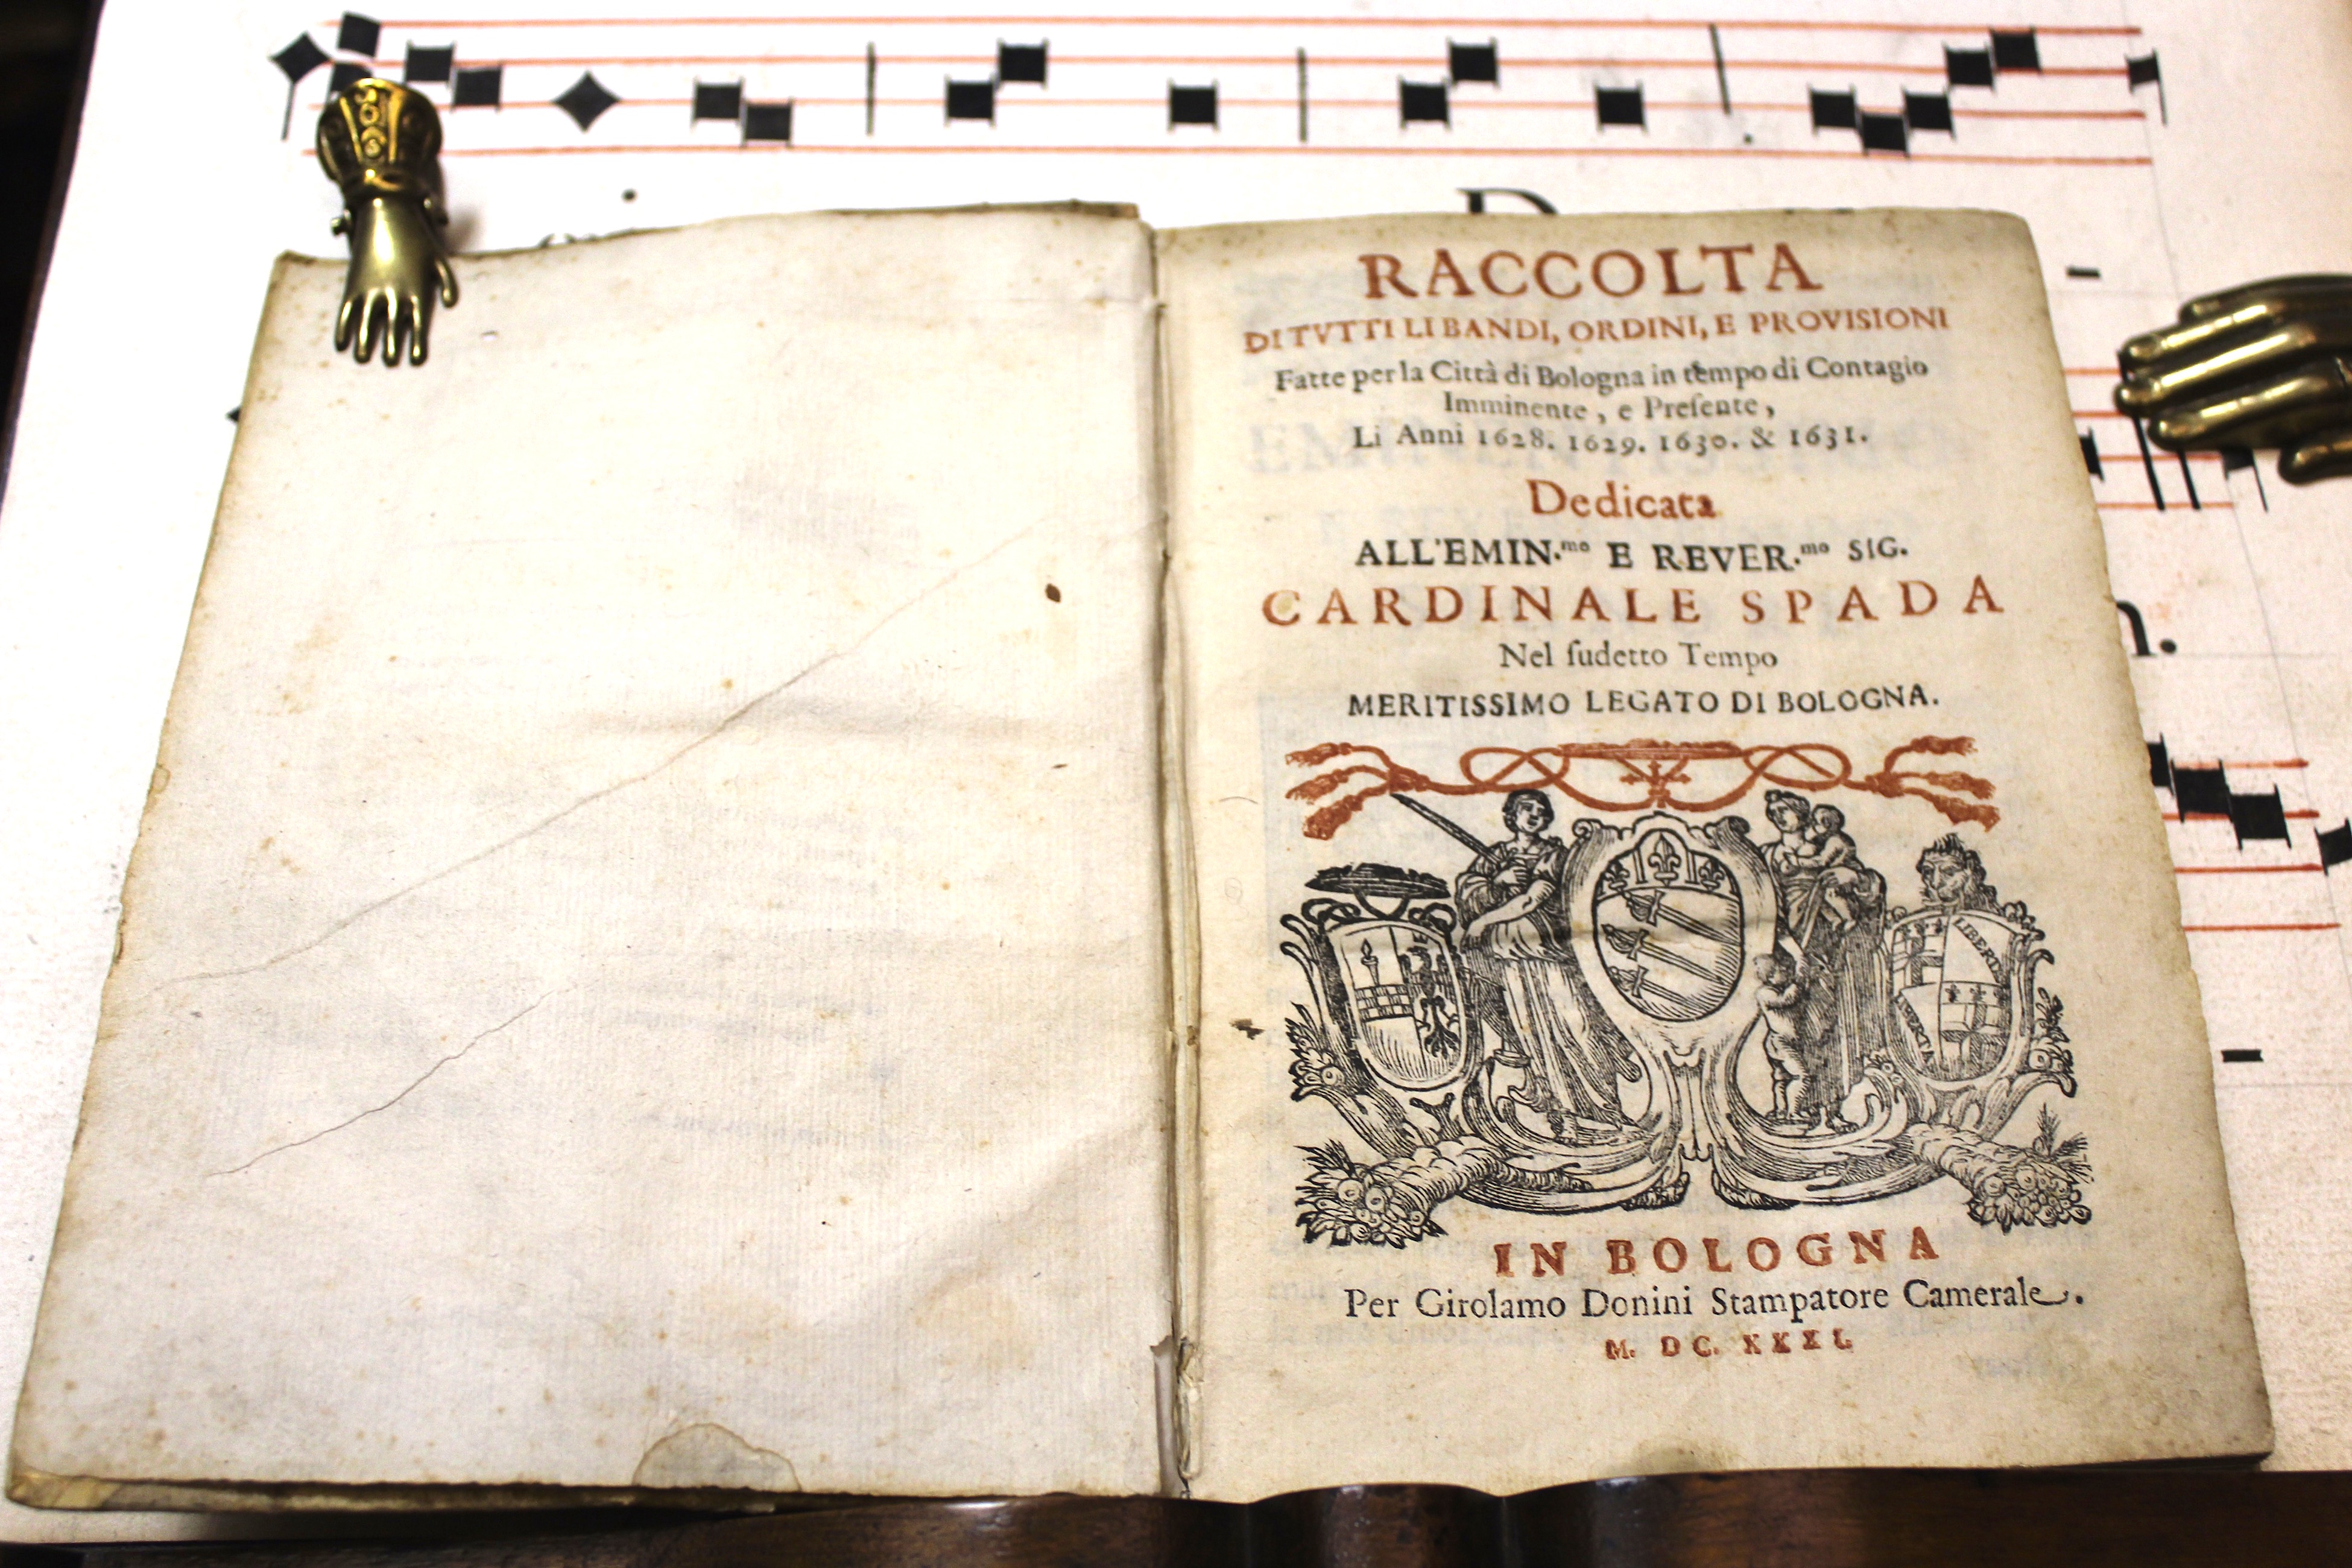 RACCOLTA
DI TVTTI LI BANDI, ORDINI, E PROVISIONI
Fatte per la Città di Bologna in tempo di Contagio
Imminente, e Preſente,
Li Anni 1628. 1629. 1630. & 1631.
Dedicata
ALL'EMIN.mo E REVER.mo SIG.
CARDINALE SPADA
Nel ſudetto Tempo
MERITISSIMO LEGATO DI BOLOGNA.
LIBERTA
IN BOLOGNA
Per Girolamo Donini Stampatore Camerale.
M. DC. XXXI.
n.